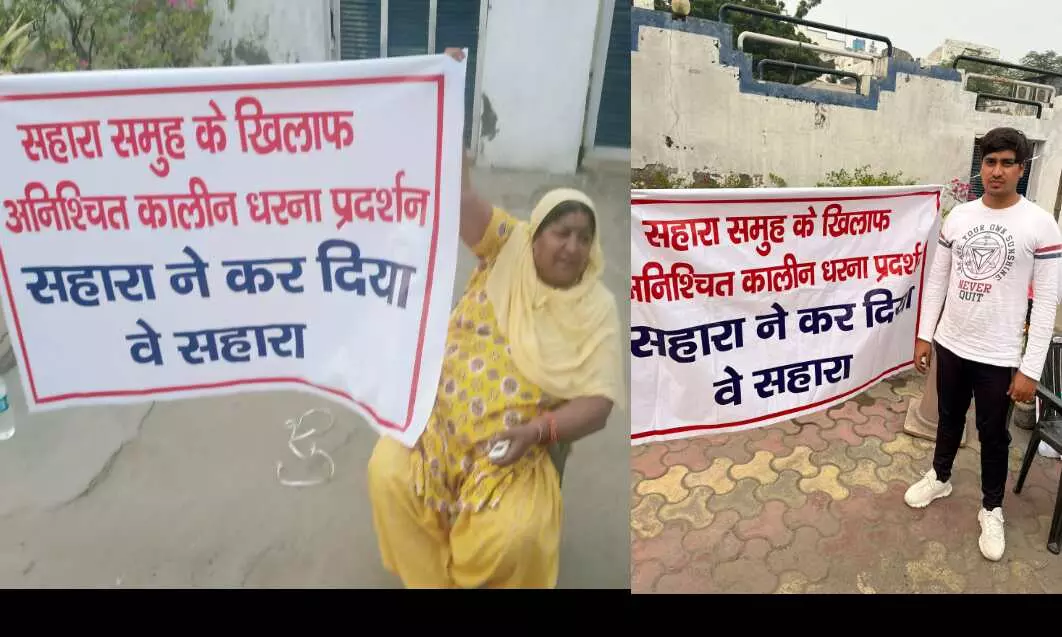 सहारा समुह के खिलाफ
अनिश्चित कालीन धरना प्रदर्शन
सहारा ने कर दिया
वे सहारा
सहारा समुह के खिलाफ
अनिश्चित कालीन धरना प्रदर्श
सहारा ने कर दिया
वे सहारा
BE YOUR OWN SUNSHINE
NEVER
QUIT